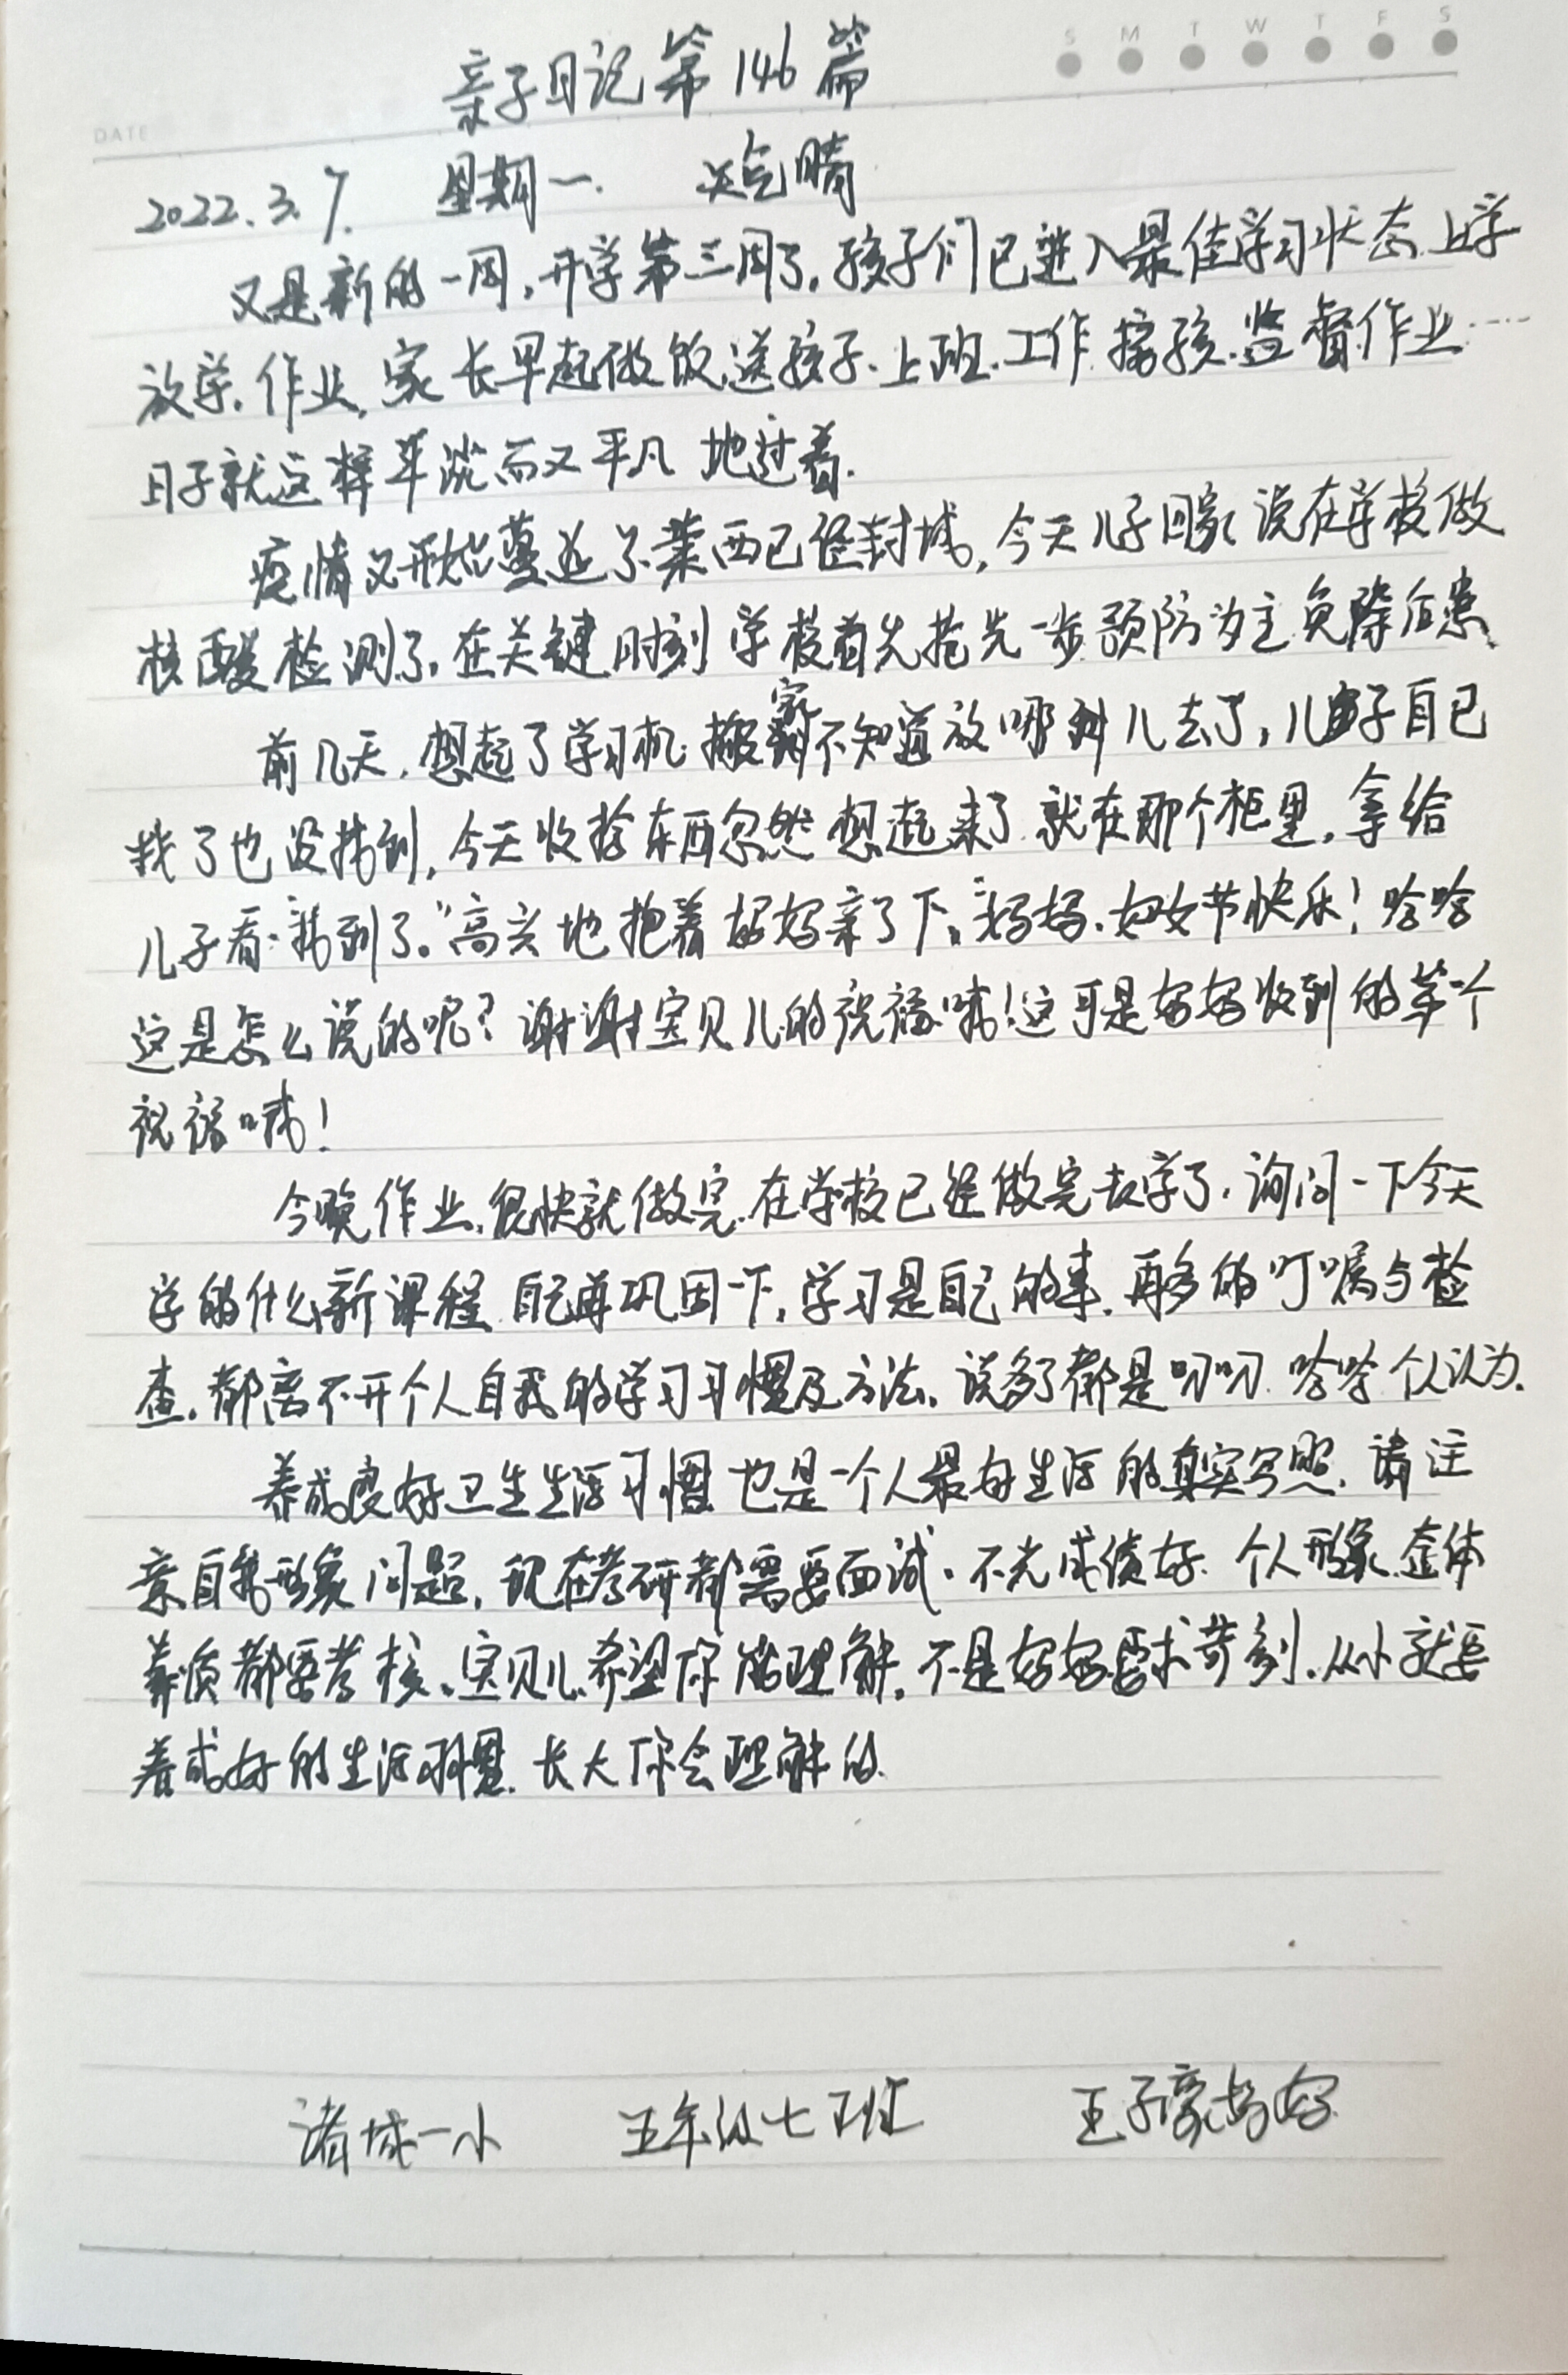 S M T W T F S
亲子日记第146篇
DATE
2022.3.7. 星期一. 天气晴
又是新的一周,开学第三周了,孩子们已进入最佳学习状态.上学
放学.作业,家长早起做饭.送孩子.上班.工作.接孩.监督作业……
日子就这样平淡而又平凡地过着.
疫情又开始蔓延了.莱西已经封城,今天儿子回家说在学校做
核酸检测了.在关键时刻学校首先抢先一步预防为主免除后患.
前几天,想起了学习机.搬家不知道放哪到儿去了,儿子自己
找了也没找到,今天收拾东西忽然想起来了.就在那个柜里,拿给
儿子看:“找到了。”高兴地抱着妈妈亲了下。“妈妈.妇女节快乐!哈哈
这是怎么说的呢?谢谢宝贝儿的祝福哦!这可是妈妈收到的第一个
祝福哦!
今晚作业.很快就做完.在学校已经做完去学了.询问一下今天
学的什么新课程.自己再巩固一下.学习是自己的事.再多的叮嘱与检
查.都离不开个人自我的学习习惯及方法.说多了都是叨叨.哈哈.个人认为.
养成良好卫生生活习惯也是一个人最好生活的真实写照.请注
意自我形象问题,现在考研都需要面试.不光成绩好.个人形象.整体
素质都要考核.宝贝儿.希望你能理解,不是妈妈要求苛刻.从小就要
养成好的生活习惯.长大你会理解的.
诸城一小 五年级七班 王子豪妈妈